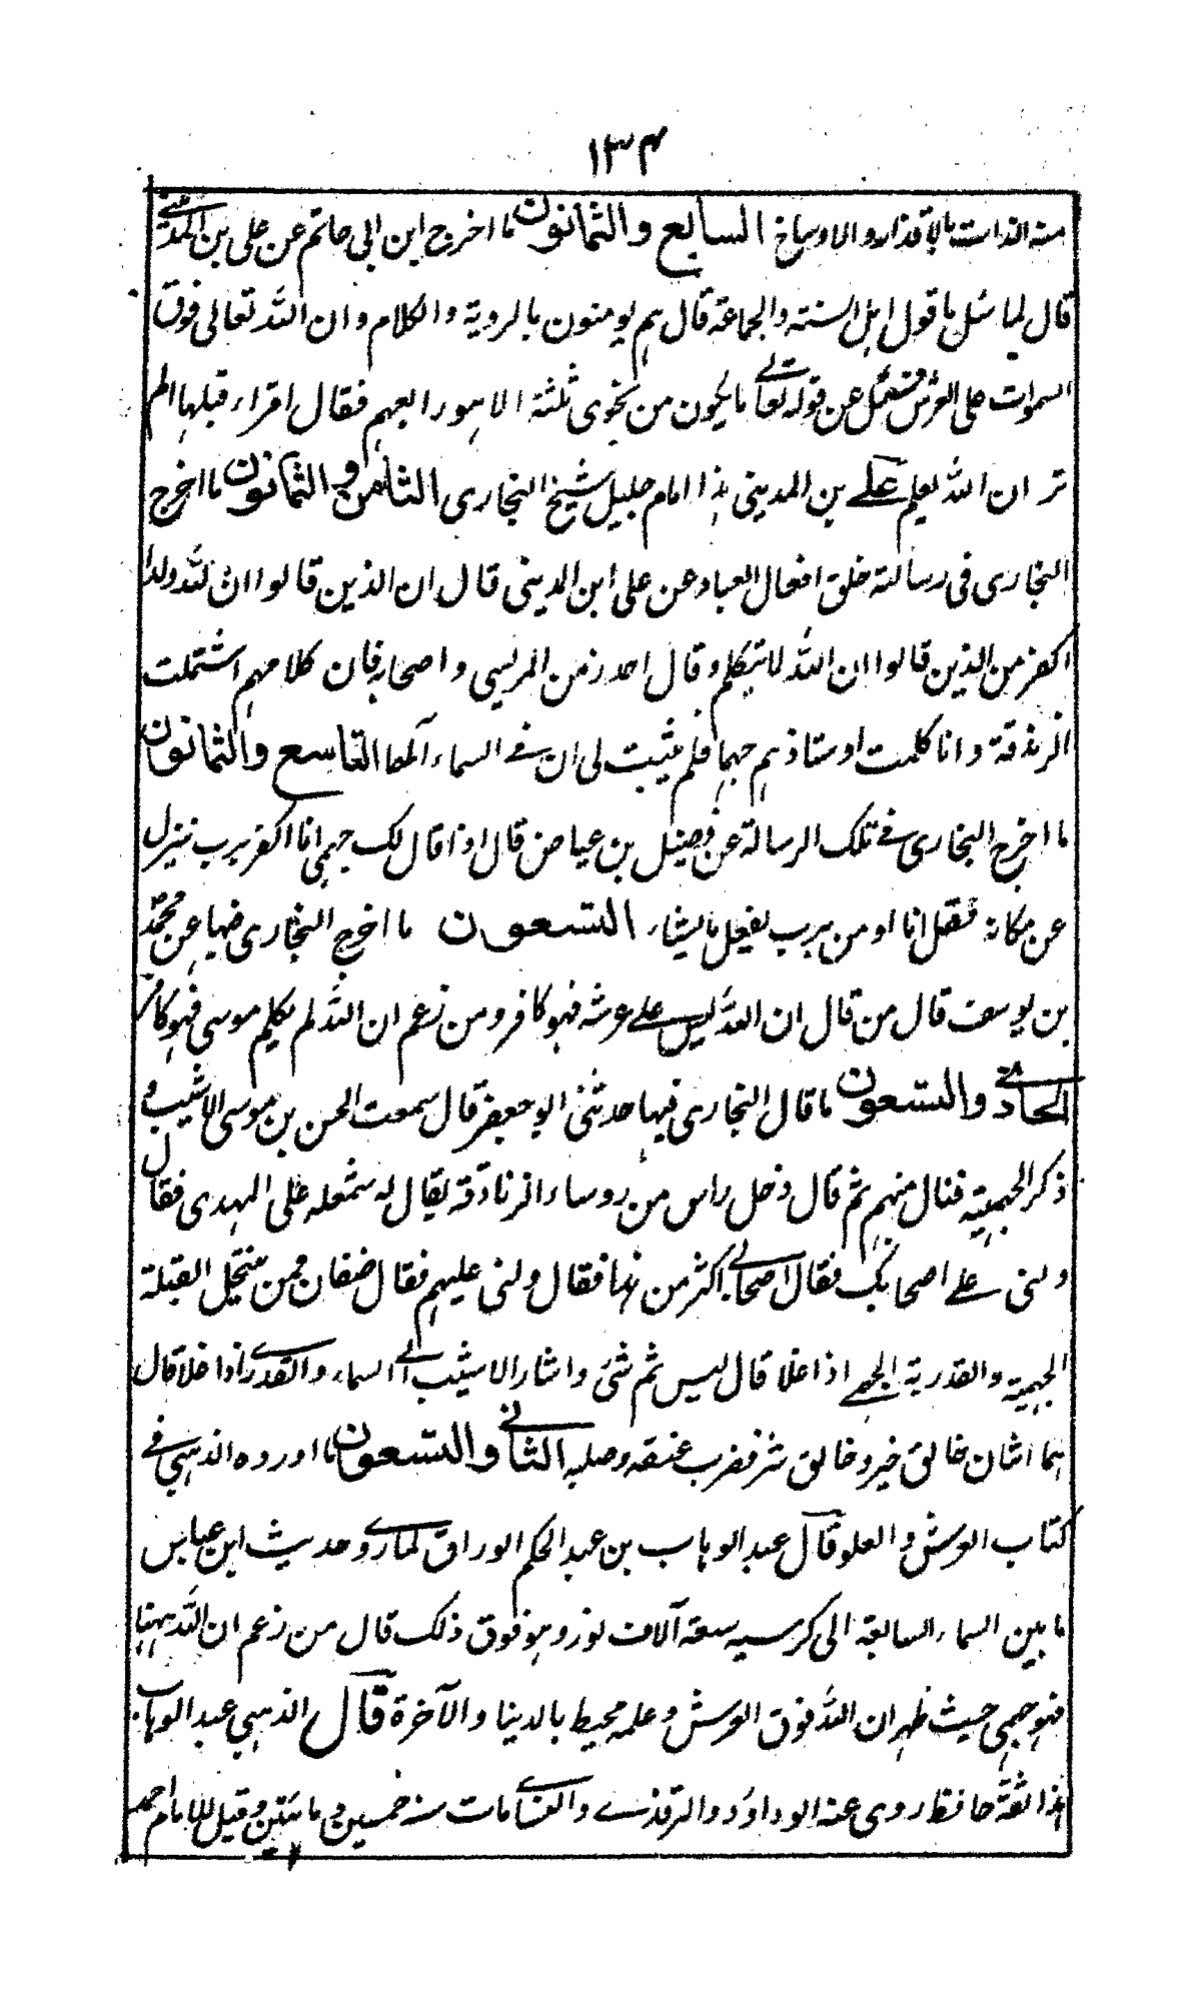 ١٣٤
منه الذات بالاقذار والاوساخ السابع والثمانون ما اخرج ابن ابی حاتم عن علی بن المدینی
قال لما سئل ما قول اہل السنة والجماعة قال ہم یومنون بالرویة والکلام وان اللہ تعالی فوق
السموات علی العرش فسئل عن قولہ تعالے ما یکون من نجوی ثلثة الا ہو رابعہم فقال اقراء قبلہا الم
تر ان اللہ یعلم علے بن المدینی ہذا امام جلیل شیخ البخاری الثامن والثمانون ما اخرج
البخاری فی رسالتہ خلق افعال العباد عن علی ابن المدینی قال ان الذین قالوا ان للہ ولدا
اکفر من الذین قالوا ان اللہ لا یتکلم وقال احذر من المریسی واصحابہ فان کلامہم اشتملت
الزندقة وانا کلمت اوستاذہم جہما فلم یثبت لی ان فے السماء آلہا التاسع والثمانون
ما اخرج البخاری فے تلک الرسالة عن فضیل بن عیاض قال اذا قال لک جہمی انا اکفر برب ینزل
عن مکانہ فقل انا اومن برب یفعل ما یشاء التسعون ما اخرج البخاری فیہا عن محمد
بن یوسف قال من قال ان اللہ لیس علے عرشہ فہو کافر ومن زعم ان اللہ لم یکلم موسی فہو کافر
الحادی والتسعون ما قال البخاری فیہا حدثنی ابو جعفر قال سمعت الحسن بن موسی الاشیب و
ذکر الجہمیة فنال منہم ثم قال دخل راس من روساء الزنادقة یقال لہ شمعلہ علی المہدی فقال
دلنی علے اصحابک فقال اصحابی اکثر من ہذا فقال دلنی علیہم فقال صنفان ممن ینتحل القبلة
الجہمیة والقدریة الجہمے اذا غلا قال لیس ثم شئ واشار الاشیب الے السماء والقدرے اذا غلا قال
ہما اثنان خالق خیر وخالق شر فضرب عنقہ وصلبہ الثانی والتسعون ما اوردہ الذہبی فے
کتاب العرش والعلو قال عبد الوہاب بن عبد الحکم الوراق لما روے حدیث ابن عباس
ما بین السماء السابعة الی کرسیہ سبعة آلاف نور وہو فوق ذلک قال من زعم ان اللہ ہہنا
فہو جہمی خبیث ان اللہ فوق العرش وعلمہ محیط بالدنیا والآخرة قال الذہبی عبد الوہاب
ہذا ثقة حافظ روی عنہ ابو داود والترمذے والنسائے مات سنہ خمسین ومائتین وقیل للامام احمد